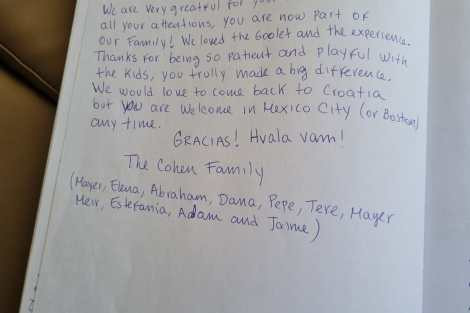 We are very greatful for
all your attentions, you are now part of
our Family! We loved the Goolet and the experience.
Thanks for being so patient and playful with
the kids, you trully made a big difference.
We would love to come back to Croatia
but you are welcome in Mexico City (or Boston)
any time.
GRACIAS! Hvala vam!
The Cohen Family
(Mayer, Elena, Abraham, Dana, Pepe, Tere, Mayer
Meir, Estefania, Adam and Jaime)